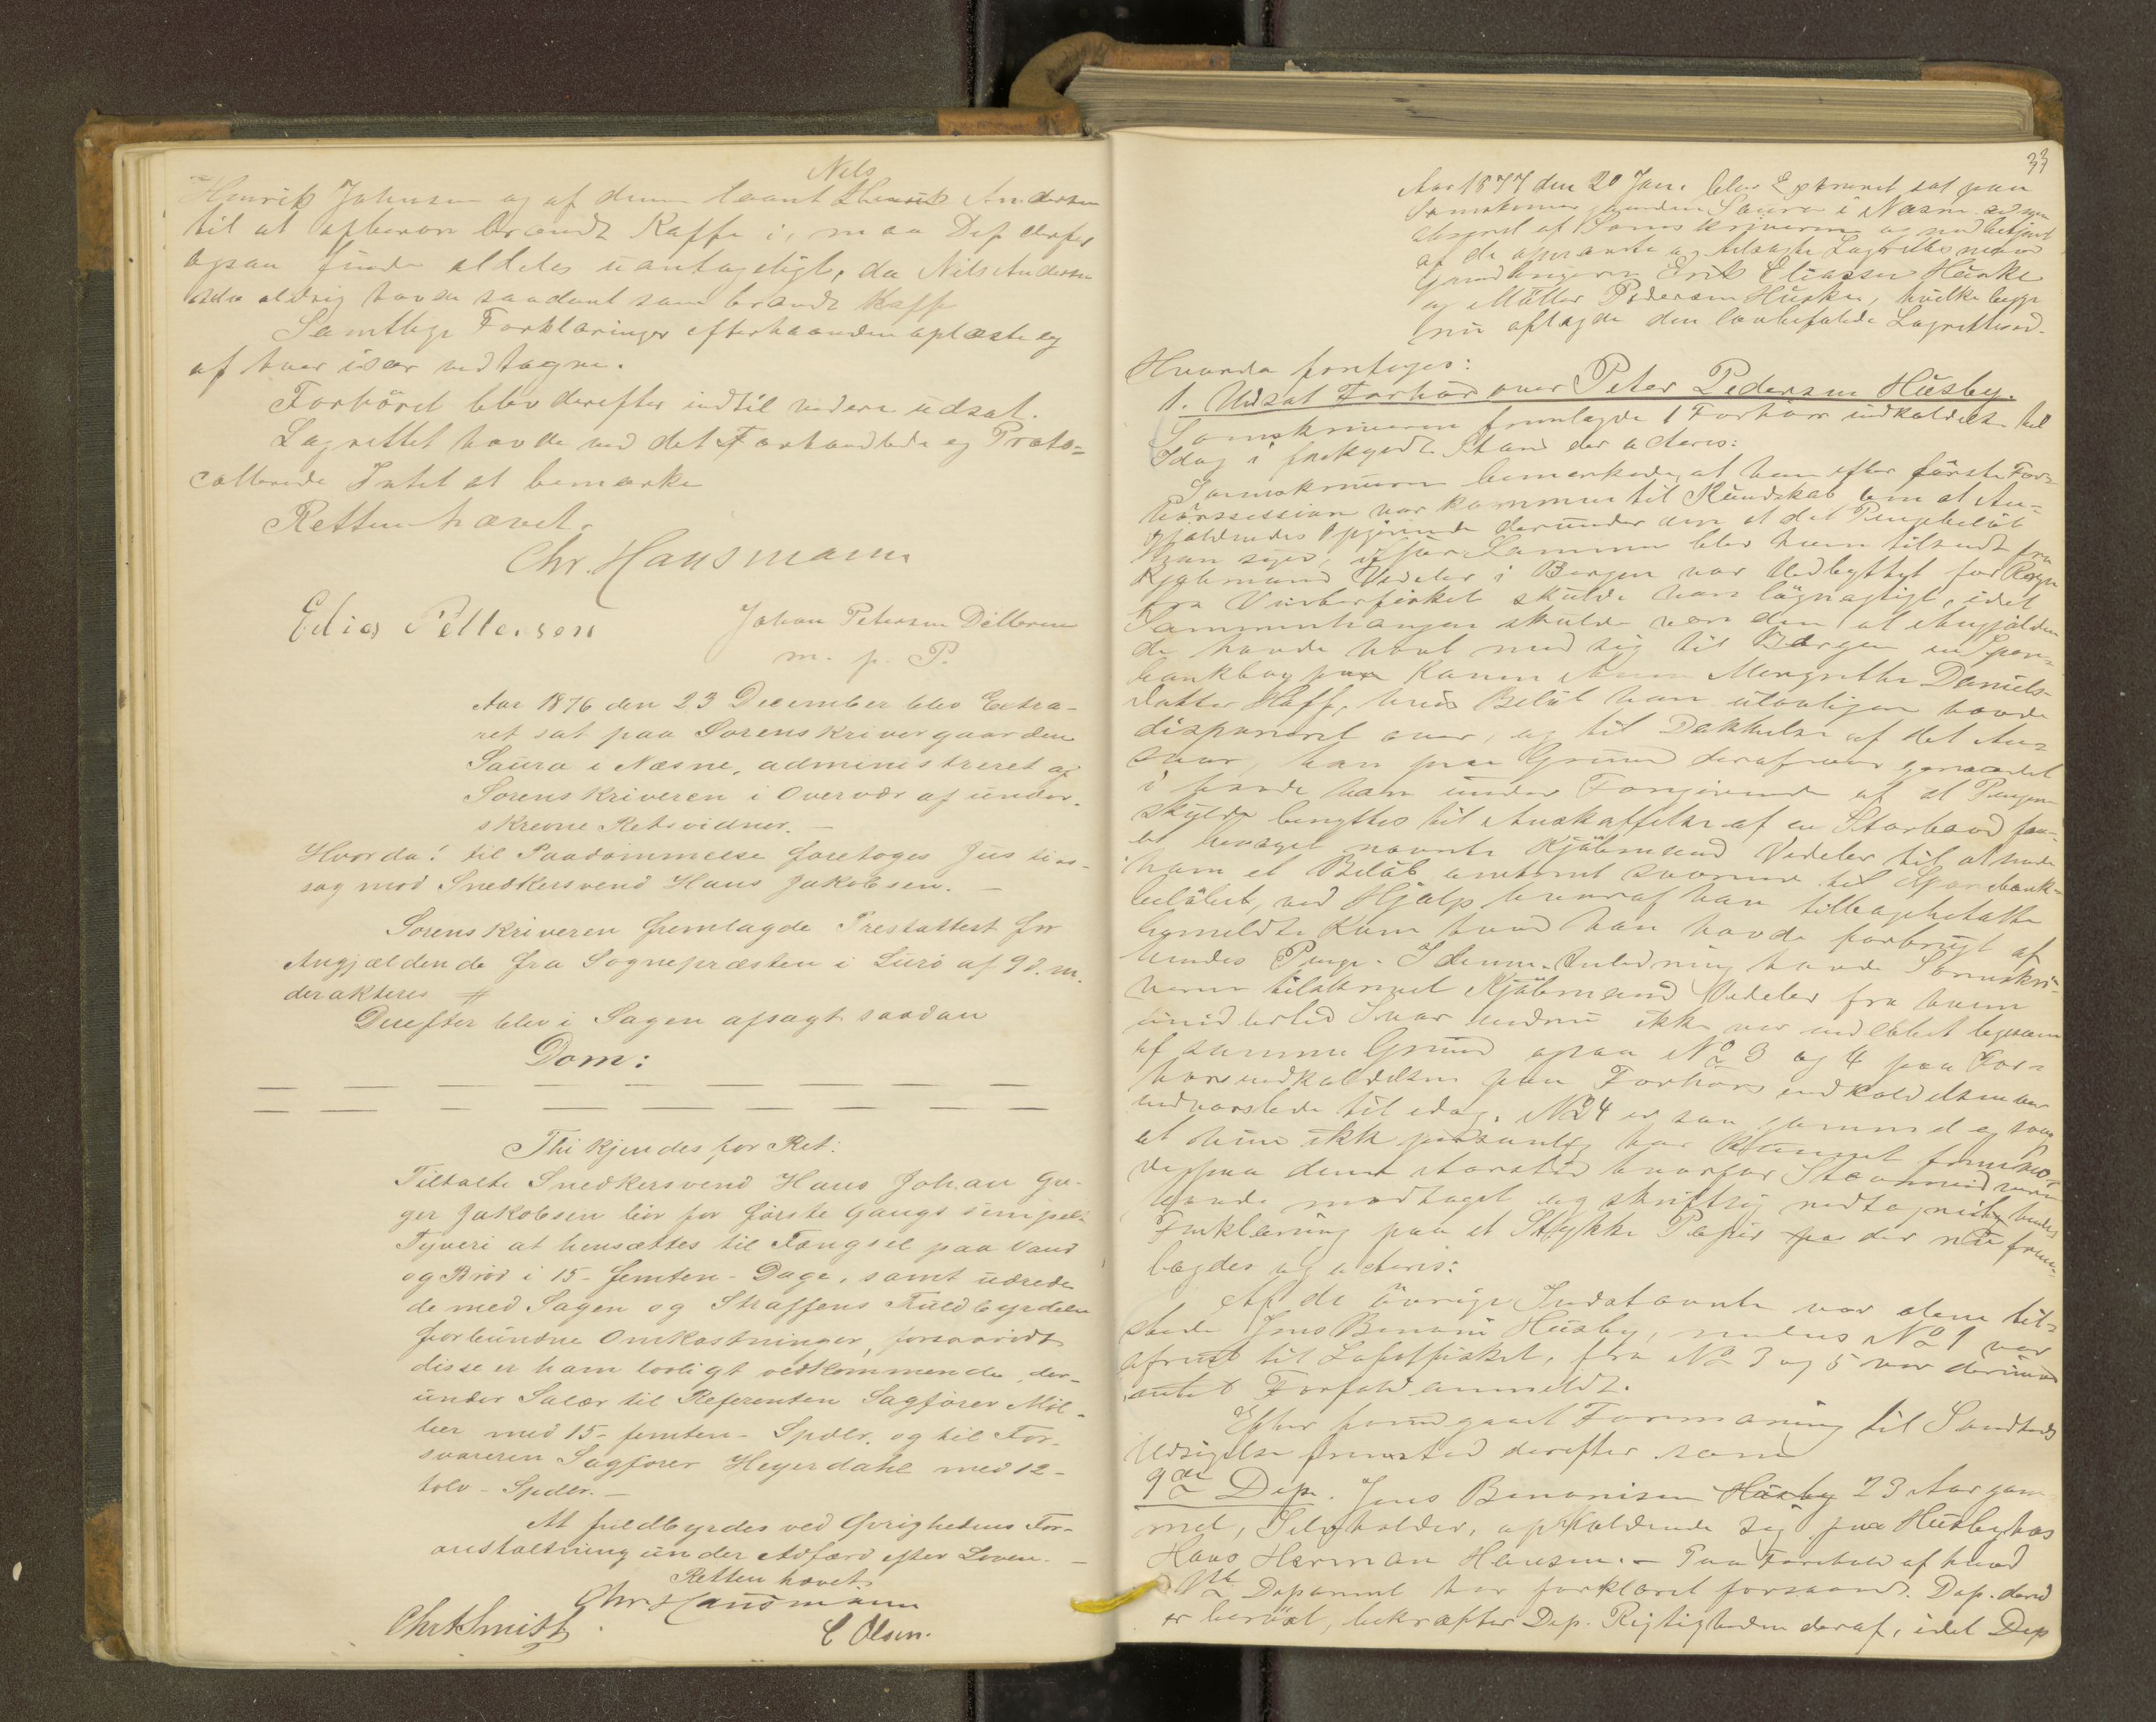 Nils
Henrik Johnsen og af denne laant Henrik Andersen
til at opbevare brændt Kaffe i, maa Dep derfor
ogsaa finde aldeles uantageligt, da Nils Andersen
aldrig havde saadant som brændt Kaffe
Samtlige Forklaringer efterhaanden oplæste og
af hver især vedtagne.
Forhöret blev derefter indtil videre udsat.
Lagrettet havde ved det Forhandlede og Proto=
collerede Intet at bemærke
Retten hævet.
Chr. Hausmann
Edias Pettersen
Johan Petersen Dilleren
m. p. P.
Aar 1876 den 23 December blev Extra-
ret sat paa Sorenskrivergaarden
Saura i Næsne, administreret af
Sorenskriveren i Overvær af under-
skrevne Retsvidner. —
Hvorda: til Paadömmelse foretoges Justits-
sag mod Snedkersvend Hans Jakobsen. —
Sorenskriveren fremlagde Prestattest for
Angjældende fra Sognepræsten i Lurö af 9 d. m.
der akteres #
Derefter blev i Sagen afsagt saadan
Dom:
Thi kjendes for Ret:
Tiltalte Snedkersvend Hans Johan Gre-
ger Jakobsen bör for förste Gangs simpelt
Tyveri at hensættes til Fængsel paa Vand
og Bröd i 15 - femten - Dage, samt udrede
de med Sagen og Straffens Fuldbyrdelse
forbundne Omkostninger, forsaavidt
disse er ham lovligt vedkommende, der-
under Salær til Referenten Sagförer Möl-
ler med 15 - femten - Spdlr. og til For-
svareren Sagförer Heyerdahl med 12 -
tolv - Spdlr. —
At fuldbyrdes ved Övrighedens For-
anstaltning under Adfærd efter Loven. —
Retten hævet.
Chr. Hausmann
Chr Schmitt
C Olsen.
33
Aar 1877 den 20 Jan. blev Extraret sat paa
Sorenskrivergaarden Saura i Næsne
af Sorenskriveren og med betjent
af de opnævnte og Lagrettesmænd
Gaardbrugerne Erik Eliassen Hauke
og Möller Pedersen Husker, hvilke begge
nu aflagde den lovbefalede Lagretteed.
Hvorda foretoges:
1. Udsat Forhör over Peter Pedersen Husby.
Sorenskriveren fremlagde 1 Forhörs indkaldelse til
Idag i forkyndt Stand der acteres:
Sorenskriveren bemærkede, at han efter förste For=
hörssession var kommen til Kundskab om at An-
gjældendes Opgivende derunder om at det Pengebelöb
han siger, ifjor Sommer blev ham tilsendt fra
Kjöbmand Vedeler i Bergen var Udbyttet for Rogn
fra Vinterfisket skulde være lögnagtigt, idet
Sammenhængen skulde være den at Angjælden
de havde havt med sig til Bergen en Spare=
bankbog paa Konen Anne Margrethe Daniels-
datter Haff, hvis Belöb han ulovligen havde
disponeret over, og til Dækkelse af det An=
svar, han paa Grund deraf var geraadet
i havde han under Foregivende af at Pengene
skulde benyttes til Anskaffelse af en Storbaad faa-
et bevæget nævnte Kjöbmand Vedeler til at sende
ham et Belöb omtrent svarende til Sparebank-
belöbet, ved Hjælp hvoraf han tilbagebetalte
bemeldte Kone hvad han havde forbrugt af
hendes Penge. I denne Anledning havde Sorenskri-
veren tilskrevet Kjöbmand Vedeler fra hvem
imidlertid Svar endnu ikke var indlöbet ligesom
af samme Grund ogsaa No 3 og 4 paa For-
hörsindkaldelsen paa Forhörs indkaldelsen var
indvarslede til idag. No 4 er saa gammel og svag
at hun ikke personlig har kunnet fremmöde
paa denne Aarstid hvorfor Stævnevidnerne
havde modtaget og skriftlig nedtegnet hendes
Forklaring paa et Stykke Papir der nu frem=
lagdes og acteres:
Af de övrige Indstævnte var alene til=
stede Jens Benoni Husby, medens No 1 var
afreist til Lofotfisket, fra No 3 og 5 var derimod
intet Forfald anmeldt.
Efter foregaaet Formaning til Sandheds
Udsigelse fremstod derefter som
9de Dep. Jens Benonisen Husby 23 Aar gam
mel, Selvholder, opholdende sig paa Husby hos
Hans Herman Hansen. — Paa Forehold af hvad
1ste Deponent har forklaret forsaavidt Dep. derved
er berört, bekræfter Dep. Rigtigheden deraf, idet Dep